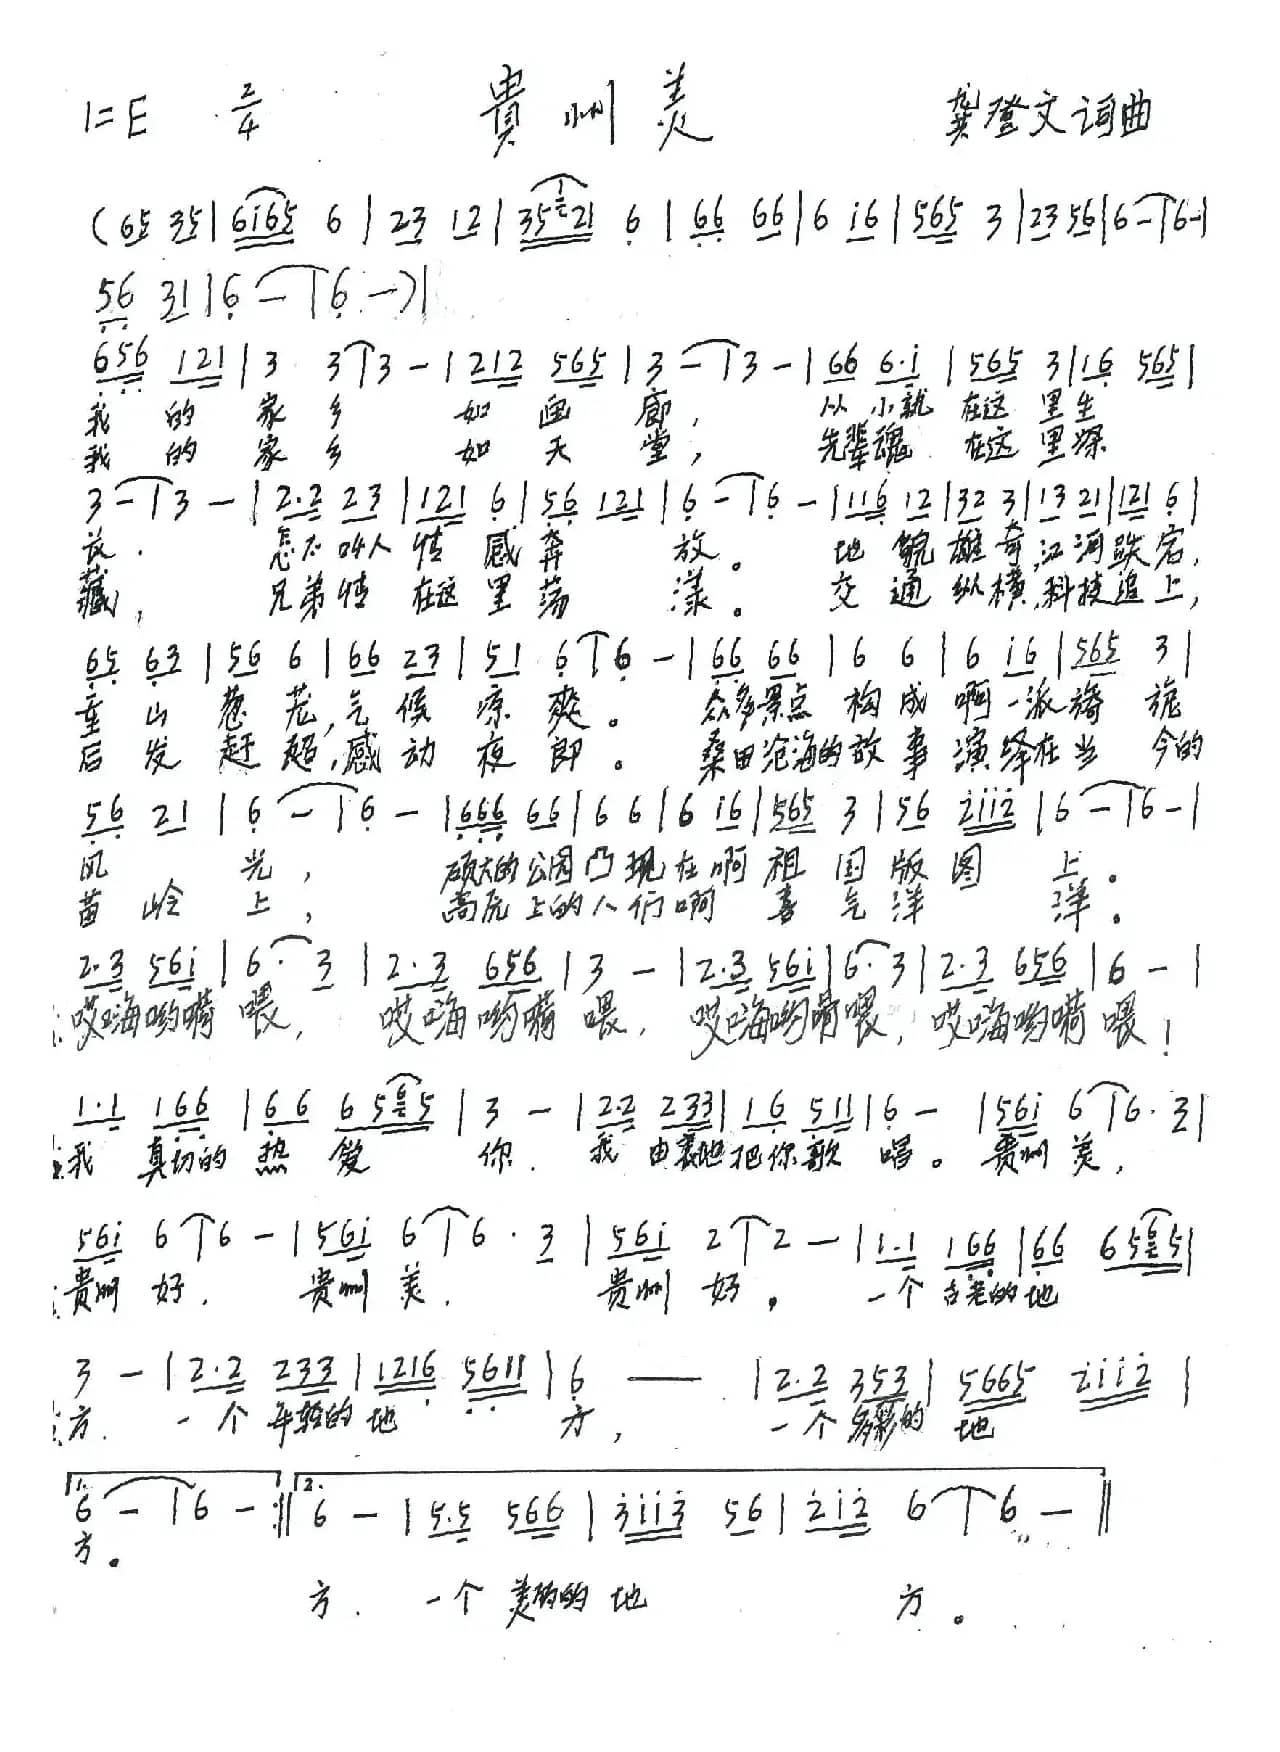 1=E 2/4 貴州美 龚登文词曲
(65 35|6i65 6|23 12|35221 6|66 66|6 i6|565 3|23 56|6-|6-|
56 31|6-|6-)|
656 121|3 3|3-|212 565|3-|3-|66 6·i|565 3|16 565|
我的家乡如画廊, 从小就在这里生
我的家乡如天堂, 先辈魂在这里深
3-|3-|2·2 23|121 6|56 121|6-|6-|116 12|32 3|13 21|121 6|
长. 怎不叫人情感奔放。 地貌雄奇,江河跌宕,
藏, 兄弟情在这里荡漾。 交通纵横,科技追上,
65 63|56 6|66 23|51 6|6-|66 66|6 6|6 i6|565 3|
重山葱茏,气候凉爽。 众多景点构成啊一派旖旎
后发赶超,感动夜郎。 桑田沧海的故事演绎在当今的
56 21|6-|6-|666 66|6 6|6 i6|565 3|56 2ii2|6-|6-|
风光, 硕大的公园凸现在啊祖国版图上。
苗岭上, 高原上的人们啊喜气洋洋。
2·3 56i|6· 3|2·3 656|3-|2·3 56i|6· 3|2·3 656|6-|
哎嗨哟嗬喂, 哎嗨哟嗬喂, 哎嗨哟嗬喂, 哎嗨哟嗬喂!
1·1 166|66 6565|3-|2·2 233|16 511|6-|56i 6|6· 3|
我真切的热爱你. 我由衷地把你歌唱。 贵州美,
56i 6|6-|56i 6|6· 3|56i 2|2-|1·1 166|66 6565|
贵州好. 贵州美. 贵州好。 一个古老的地
3-|2·2 233|1216 5611|6 —|2·2 353|5665 2ii2|
方. 一个年轻的地方, 一个多彩的地
1. 6-|6-:‖2. 6-|5·5 566|3ii3 56|2i2 6|6-‖
方。
方. 一个美丽的地方。